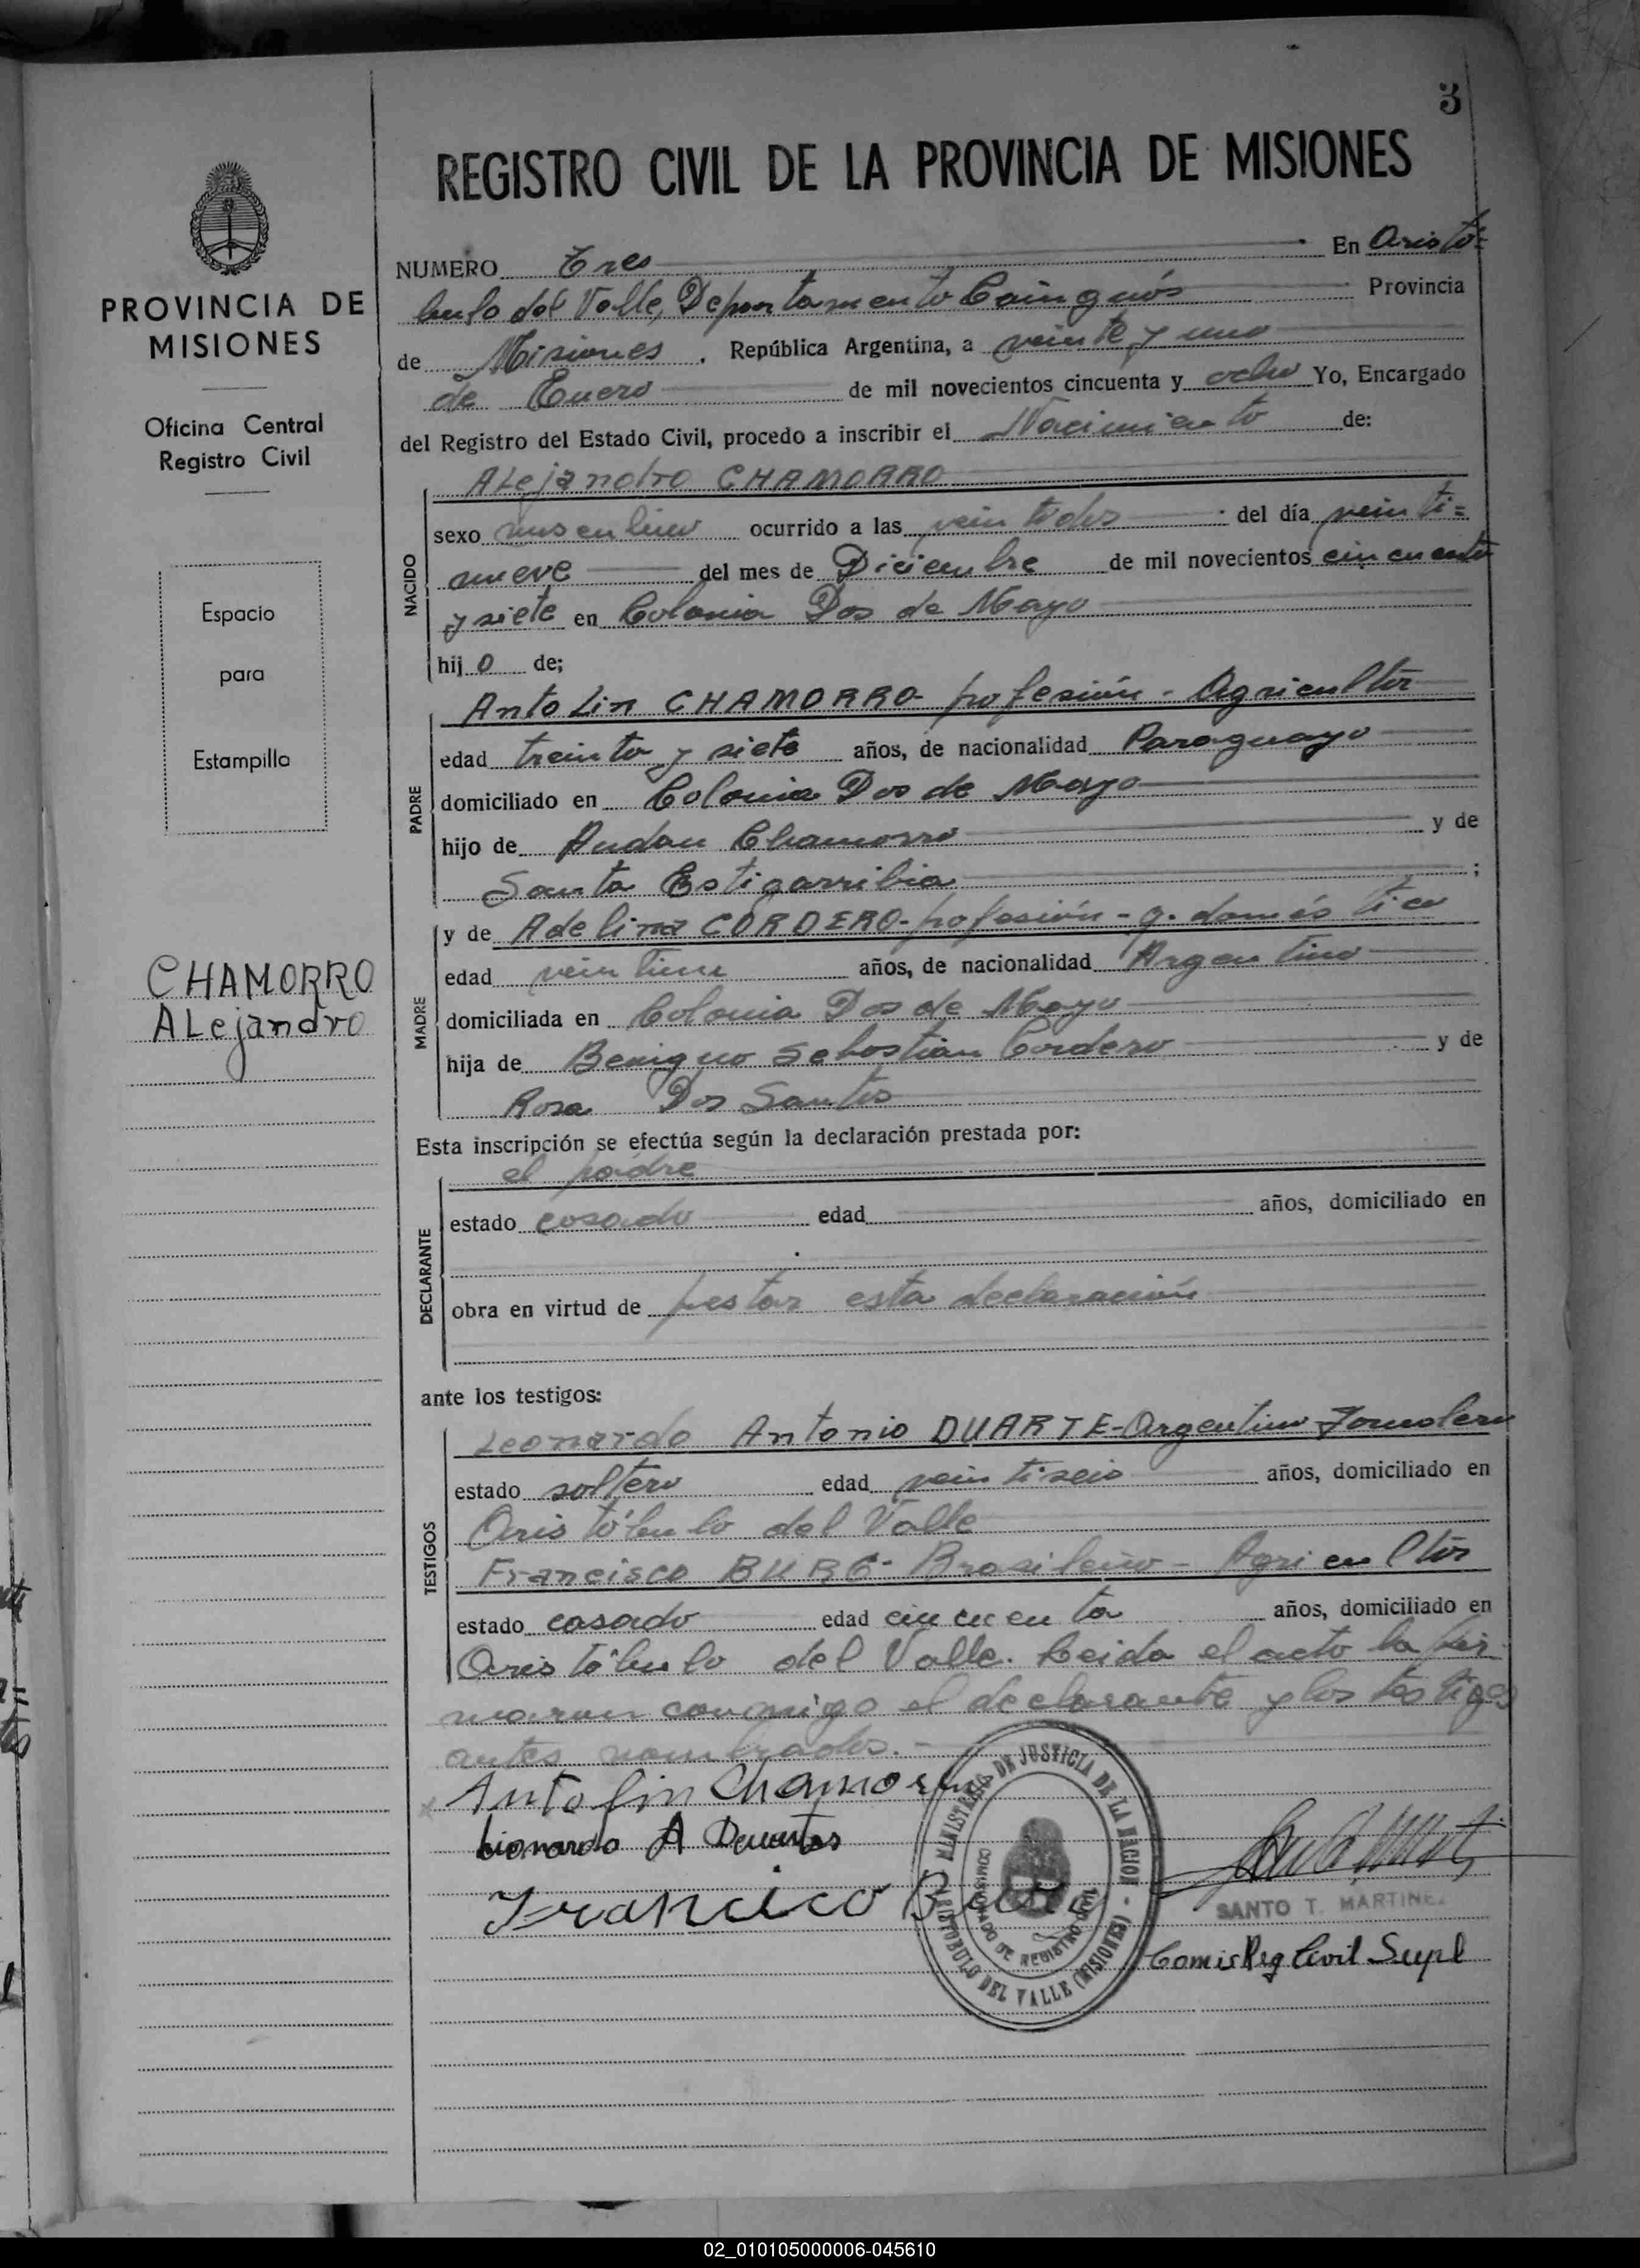 3
REGISTRO CIVIL DE LA PROVINCIA DE MISIONES
PROVINCIA DE
MISIONES
Oficina Central
Registro Civil
Espacio
para
Estampilla
CHAMORRO
ALejandro
NUMERO Tres En Aristó=
bulo del Valle, Departamento Cainguás Provincia
de Misiones , República Argentina, a veinte y uno
de Enero de mil novecientos cincuenta y ocho Yo, Encargado
del Registro del Estado Civil, procedo a inscribir el Nacimiento de:
NACIDO
ALejandro CHAMORRO
sexo masculino ocurrido a las veintidos del día veinti=
nueve del mes de Diciembre de mil novecientos cincuenta
y siete en Colonia Dos de Mayo
hij o de;
PADRE
AntoLin CHAMORRO- profesión - Agricultor
edad treinta y siete años, de nacionalidad Paraguayo
domiciliado en Colonia Dos de Mayo
hijo de Chamorro y de
Santa Estigarribia ;
MADRE
y de Adelina CORDERO- profesión - q. doméstico
edad años, de nacionalidad Argentino
domiciliada en Colonia Dos de Mayo
hija de Benigno Sebastian Cordero y de
Rosa Dos Santos
Esta inscripción se efectúa según la declaración prestada por:
DECLARANTE
el padre
estado casado edad años, domiciliado en
obra en virtud de prestar esta declaración
ante los testigos:
TESTIGOS
Leonardo Antonio DUARTE-Argentino-Jornalero
estado soltero edad veintiseis años, domiciliado en
Aristóbulo del Valle
Francisco - Brasileño - Agricultor
estado casado edad cincuenta años, domiciliado en
Aristóbulo del Valle. Leida el acto la fir-
maron conmigo el declarante y los testigos
antes nombrados.-
Antolin Chamorro
Lionardo A
Francisco
MINISTERIO DE JUSTICIA DE LA NACION - ARISTOBULO DEL VALLE (MISIONES)
COMISIONADO DE REGISTRO CIVIL
SANTO T. MARTINEZ
Comis Reg Civil Supl
02_010105000006-045610